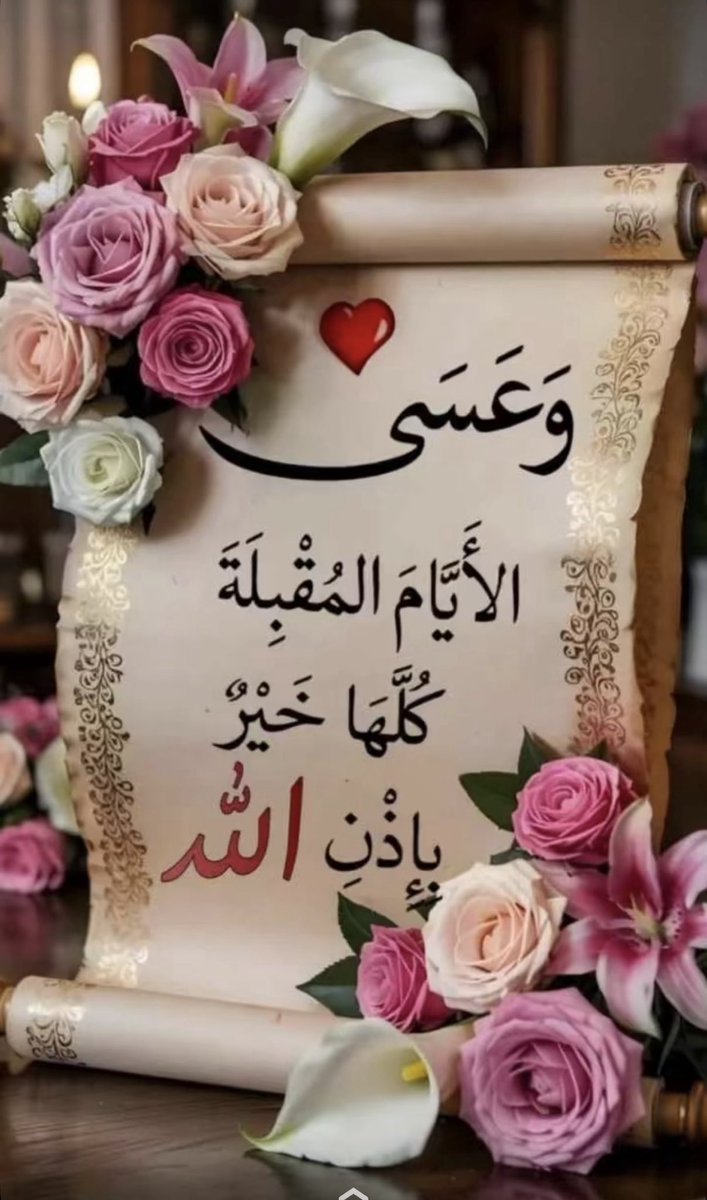 وَعَسَى
الأَيَّامَ المُقْبِلَةَ
كُلَّهَا خَيْرٌ
بِإِذْنِ اللّٰه